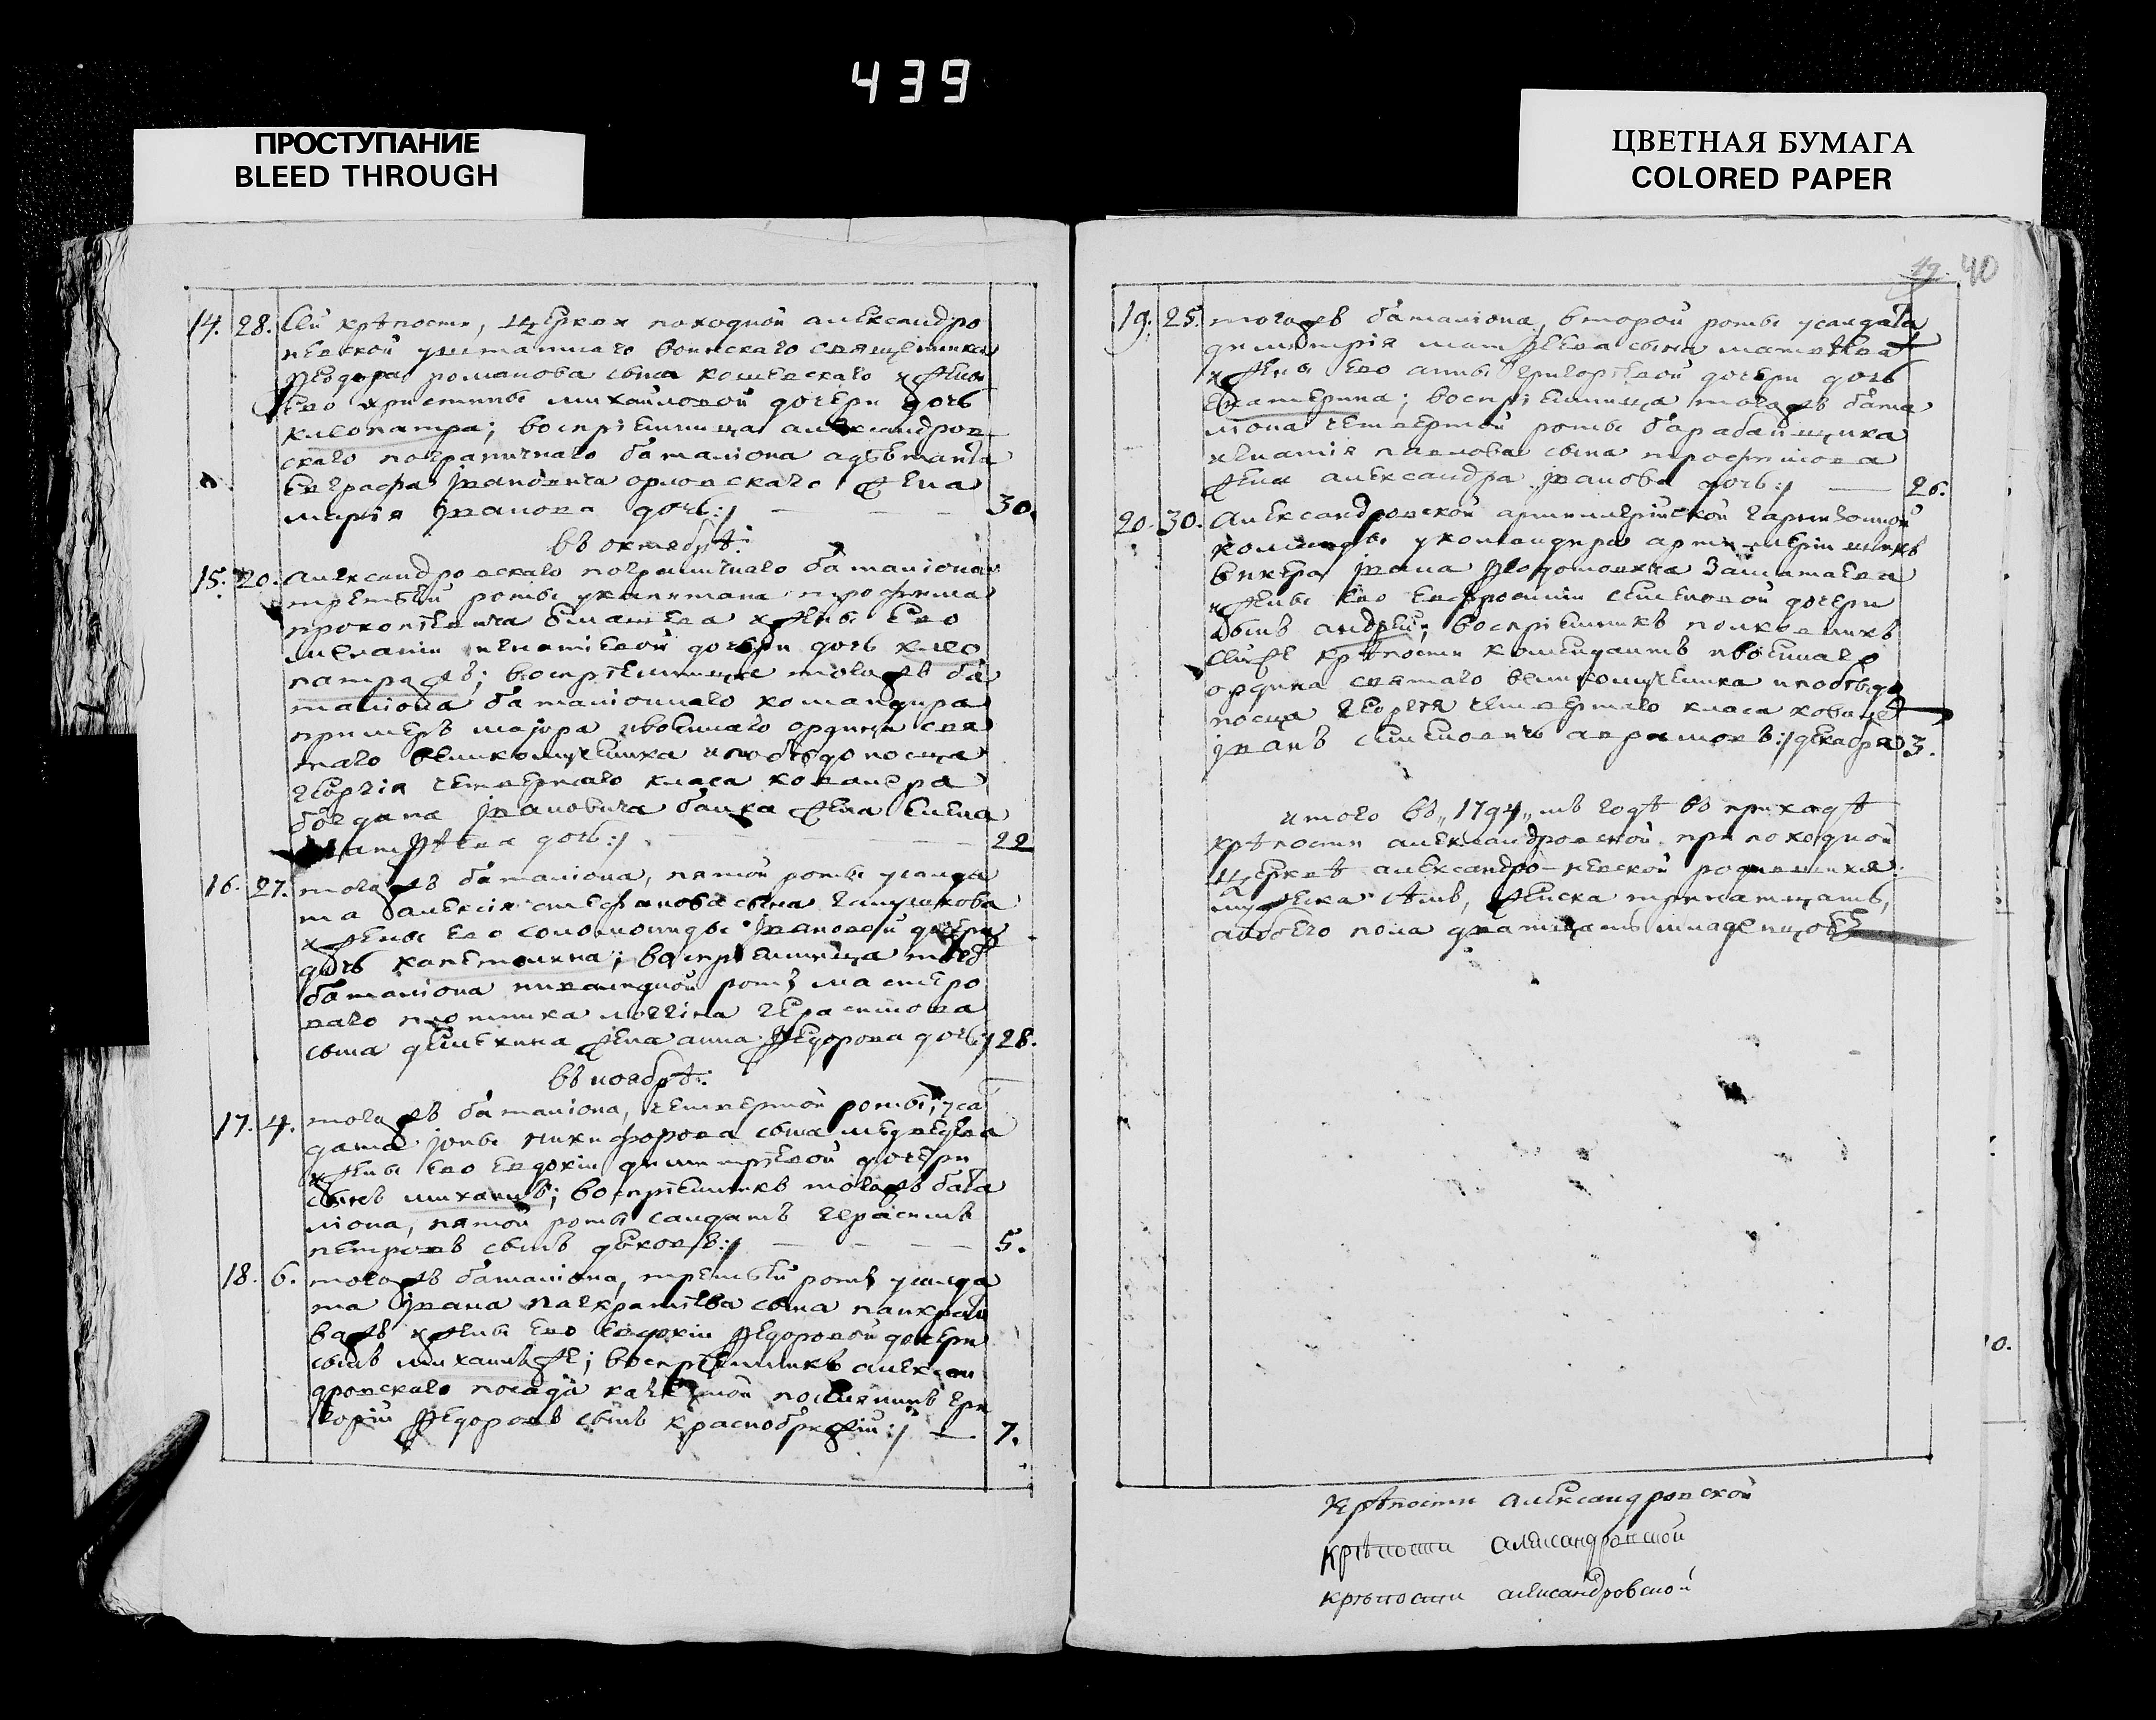 439
ПРОСТУПАНИЕ
BLEED THROUGH
ЦВЕТНАЯ БУМАГА
COLORED PAPER
14. 28. Сей крѣпости, церкви походной александро
невской уштатнаго воинскаго священника
Ѳеодора романова сына кошевскаго жены
ево христины михайловой дочери дочь
клеопатра; воспріемница александров
скаго пограничнаго баталіона адъютанта
Евграфа Ивановича орловскаго жена
марія Иванова дочь:/ 30.
въ октябрѣ:
15. 20. александровскаго пограничнаго баталіона
третьей роты укапитана трофима
прокопьевича жены ево
меланіи игнатіевой дочери дочь клео
патра жъ; воспріемница тогожъ ба
таліона баталіоннаго командира
примеръ маіора ивоеннаго ордина свя
таго великомученика ипобѣдоносца
георгія четвертаго класа кавалера
богдана Ивановича жена Елена
дочь:/ 22
16. 27. тогожъ баталіона, пятой роты усалда
та алексія стефанова сына
жены ево соломониды Ивановой дочери
дочь капетолина; воспріемница тогожъ
баталіона инвалидной роты мастеро
ваго плотника логгина герасимова
сына жена анна Ѳедорова дочь:/ 28.
въ ноябрѣ:
17. 4. тогожъ баталіона, четвертой роты, усал
дата іоны никифорова сына медведева
жены ево евдокіи димитріевой дочери
сынъ михаилъ; воспріемникъ тогожъ бата
ліона, пятой роты салдатъ герасимъ
петровъ сынъ дьковъ:/ 5.
18. 6. тогожъ баталіона, третьей роты усалда
та Ивана панкратьева сына панкра
жены ево евдокіи Ѳедоровой дочери
сынъ михаилъ же; воспріемникъ алексан
дровскаго посада казенной поселянинъ гри
горій Ѳедоровъ сынъ краснобрижій:/ 7.
49. 40
19. 25. тогожъ баталіона, второй роты усалдата
димитрія матвеева сына матвеева
жены ево анны григоріевой дочери дочь
екатерина; воспріемница тогожъ бата
ліона четвертой роты барабанщика
игнатія павлова сына трофимова
жена александра Иванова дочь:/ 26.
20. 30. александровской артиллерійской гарнизонной
команды укомандира артиллеріи штыкъ
юнкера Ивана Ѳедотовича
жены ево евфросиніи семеновой дочери
сынъ андрей; воспріемникъ полковникъ
сей же крѣпости комендантъ ивоеннаго
ордина святаго великомученика ипобѣдо
носца георгія четвертаго класа кавалеръ
Иванъ семеновичь аврамовъ:/ декабря 3.
итого въ „1794„ мъ годѣ въ приходѣ
крѣпости александровской при походной
церквѣ александро-невской родившихся:
мужеска семь, женска тринатцать,
обоего пола дватцать младенцовъ
Крѣпости александровской
крѣпости александровской
крѣпости александровской
10.